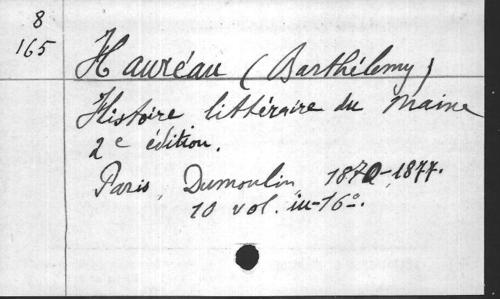 8
165
Hauréau (Barthélemy)
Histoire littéraire du Maine
2e édition.
Paris, Dumoulin, 1870-1877.
10 vol. in-16º.